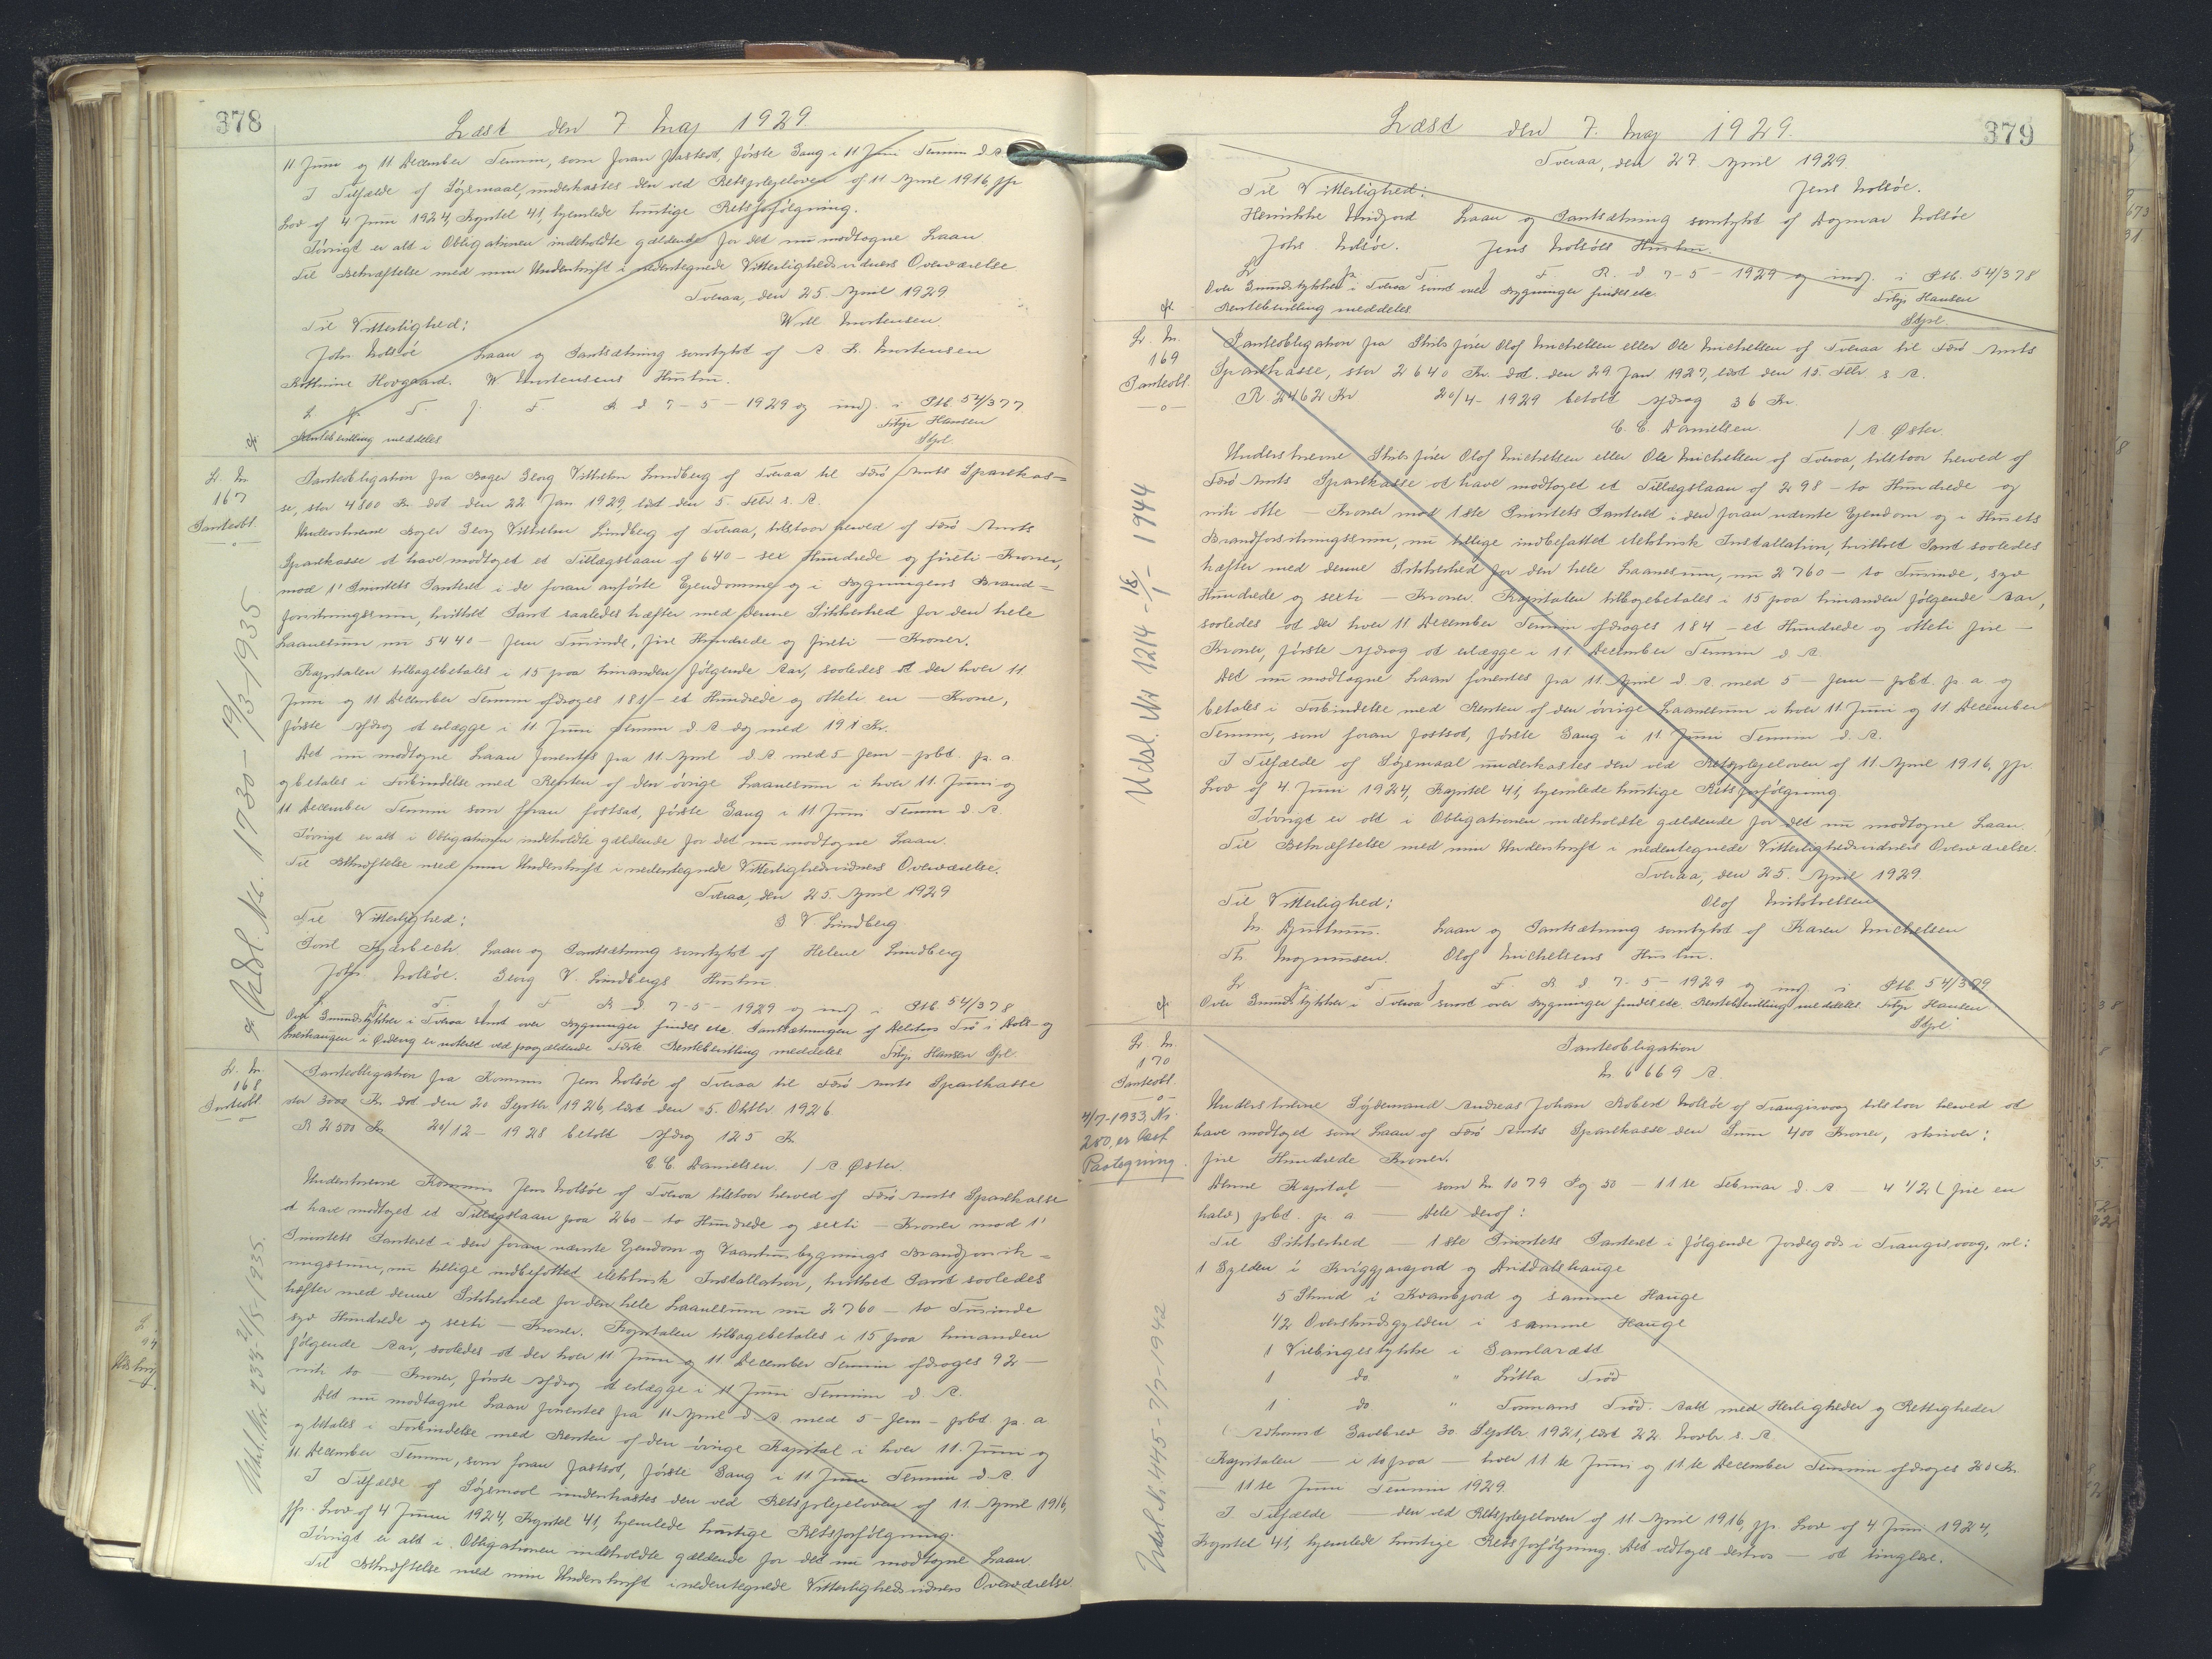 378
Læst den 7 Maj 1929.
11 Juni og 11 December Termin, som foran fastsat, første Gang i 11 Juni Termin d. A.
I Tilfælde af Søgsmaal, underkastes den ved Retsplejeloven af 11 April 1916, jfr.
Lov af 4 Juni 1924, Kapitel 41, hjemlede hurtige Retsforfølgning.
Iøvrigt er alt i Obligationen indeholdte gældende for det nu modtagne Laan
Til Bekræftelse med min Underskrift i nedentegnede Vitterlighedsvidners Overværelse
Tveraa, den 25. April 1929.
Til Vitterlighed: Will Mortensen.
Johs. Holsøe Laan og Pantsætning samtykt af A. K. Mortensen
Kathrine Hovgaard. W Mortensens Hustru.
L. p. T. f. F. R. d 7-5-1929 og indf. i Ptb. 54/377.
Rentebevilling meddeles Tilje Hansen
Stpl.
L. Nr.
167
Panteobl.
-o-
Panteobligation fra Bager Georg Vilhelm Lindberg af Tveraa til Færø Amts Sparekas=
se, stor 4800 Kr. dat. den 22 Jan 1929, læst den 5. Febr s. A.
Underskrevne Bager Georg Vilhelm Lindberg af Tveraa, tilstaar herved af Færø Amts
Sparekasse at have modtaget et Tillægslaan af 640 - sex Hundrede og fireti - Kroner,
mod 1' Prioritets Panteret i de foran anførte Ejendomme og i Bygningens Brand=
forsikringssum, hvilket Pant saaledes hæfter med denne Sikkerhed for den hele
Laanesum nu 5440 - fem Tusinde, fire Hundrede og fireti - Kroner.
Kapitalen tilbagebetales i 15 paa hinanden følgende Aar, saaledes at der hver 11
Juni og 11 December Termin afdrages 181 - et Hundrede og otteti en - Krone,
første Afdrag at erlægge i 11 Juni Termin d. A. dog med 191 Kr.
Det nu modtagne Laan forrentes fra 11 April d. A med 5 - fem - pbt. p. a.
og betales i Forbindelse med Renten af den øvrige Laanesum i hver 11. Juni og
11 December Termin som foran fastsat, første Gang i 11 Juni Termin d. A.
Iøvrigt er alt i Obligationen indeholdte gældende for det nu modtagne Laan.
Til Bekræftelse med min Underskrift i nedentegnede Vitterlighedsvidners Overværelse.
Tveraa, den 25. April 1929
Til Vitterlighed: G V Lindberg
Laan og Pantsætning samtykt af Helene Lindberg
Johs. Holsøe. Georg V. Lindbergs Hustru
L. p. T. f. F. R d 7-5-1929 og indf i Ptb. 54/378
Over Grundstykker i Tveraa samt over Bygninger findes etc. Pantsætningen af
er noteret ved paagældende Rentebevilling meddeles Tilje Hansen Stpl.
Udsl. Nr. 1730 - 19/3-1935
L. Nr.
168
Panteobl
-o-
Panteobligation fra Kommis Jens Holsøe af Tveraa til Færø Amts Sparekasse
stor 3000 Kr. dat den 20 Septbr. 1926, læst den 5. Oktbr. 1926
R 2500 Kr. 20/12 - 1928 betalt Afdrag 125 Kr
C. C. Danielsen. / A. Øster.
Underskrevne Kommis Jens Holsøe af Tveraa tilstaar herved af Færø Amts Sparekasse
at have modtaget et Tillægslaan paa 260 - to Hundrede og sexti - Kroner mod 1'
Prioritets Panteret i den foran nævnte Ejendom og Vaaningsbygnings Brandforsik=
ringssum, nu tillige indbefattet elektrisk Installation, hvilket Pant saaledes
hæfter med denne Sikkerhed for den hele Laanesum nu 2760 - to Tusinde
syv Hundrede og sexti - Kroner. Kapitalen tilbagebetales i 15 paa hinanden
følgende Aar, saaledes at der hver 11 Juni og 11 December Termin afdrages 92 -
niti to - Kroner, første Afdrag at erlægge i 11 Juni Termin d. A.
Det nu modtagne Laan forrentes fra 11 April d. A. med 5 - fem - pbt. p. a
og betales i Forbindelse med Renten af den øvrige Kapital i hver 11. Juni og
11 December Termin, som foran fastsat, første Gang i 11 Juni Termin d. A.
I Tilfælde af Søgsmaal underkastes den ved Retsplejeloven af 11. April 1916,
jfr. Lov af 4 Juni 1924, Kapitel 41, hjemlede hurtige Retsforfølgning.
Iøvrigt er alt i Obligationen indeholdte gældende for det nu modtagne Laan.
Til Bekræftelse med min Underskrift i nedentegnede Vitterlighedsvidners Overværelse.
Udsl. Nr. 234 - 21/5-1935.
379
Læst den 7. Maj 1929.
Tveraa, den 27 April 1929.
Til Vitterlighed: Jens Holsøe.
Henrikke Laan og Pantsætning samtykt af Dagmar Holsøe
Johs. Holsøe. Jens Holsøes Hustru.
L p. T. f F. R. d 7-5-1929 og indf. i Ptb. 54/378
Over Grundstykket i Tveraa samt over Bygninger findes etc.
Rentebevilling meddeles Tilje Hansen
Stpl.
L. Nr.
169
Panteobl.
-o-
Panteobligation fra Skibsfører Olaf Michelsen eller Ole Michelsen af Tveraa til Færø Amts
Sparekasse, stor 2640 Kr. dat. den 29 Jan 1927, læst den 15. Febr s. A.
R. 2462 Kr 20/4 - 1929 betalt Afdrag 36 Kr.
C. C. Danielsen. / A. Øster.
Underskrevne Skibsfører Olaf Michelsen eller Ole Michelsen af Tveraa, tilstaar herved af
Færø Amts Sparekasse at have modtaget et Tillægslaan af 298 - to Hundrede og
niti otte - Kroner mod 1ste Prioritets Panteret i den foran nævnte Ejendom og i Husets
Brandforsikringssum, nu tillige indbefattet elektrisk Installation, hvilket Pant saaledes
hæfter med denne Sikkerhed for den hele Laanesum, nu 2760 - to Tusinde, syv
Hundrede og sexti - Kroner. Kapitalen tilbagebetales i 15 paa hinanden følgende Aar,
saaledes at der hver 11 December Termin afdrages 184 - et Hundrede og otteti fire -
Kroner, første Afdrag at erlægge i 11 December Termin d. A.
Det nu modtagne Laan forrentes fra 11. April d. A. med 5 - fem - pbt. p. a og
betales i Forbindelse med Renten af den øvrige Laanesum i hver 11. Juni og 11 December
Termin, som foran fastsat, første Gang i 11. Juni Termin d. A.
I Tilfælde af Søgsmaal underkastes den ved Retsplejeloven af 11 April 1916, jfr.
Lov af 4. Juni 1924, Kapitel 41, hjemlede hurtige Retsforfølgning
Iøvrigt er alt i Obligationen indeholdte gældende for det nu modtagne Laan.
Til Bekræftelse med min Underskrift i nedentegnede Vitterlighedsvidners Overværelse.
Tveraa, den 25. April 1929.
Til Vitterlighed: Olaf Michelsen
Laan og Pantsætning samtykt af Karen Michelsen
Th. Magnussen. Olaf Michelsens Hustru.
L p. T. f. F. R d 7-5-1929 og indf i Ptb 54/379
Over Grundstykker i Tveraa samt over Bygninger findes etc. Rentebevilling meddeles. Tilje Hansen
Stpl
Udsl. Nr 1214 - 18/1 - 1944
L. Nr.
170
Panteobl.
-o-
4/7-1933, Nr.
250, er læst
Paategning
Panteobligation
Nr. 6669 A.
Underskrevne Sydemand Andreas Johan Robert Holsøe af Trangisvaag tilstaar herved at
have modtaget som Laan af Færø Amts Sparekasse den Sum 400 Kroner, skriver:
fire Hundrede Kroner.
Denne Kapital - som Nr 1079 Pg 50 - 11te Februar d. A - 4 1/2 (fire en
halv) pbt. p. a - Dele deraf:
Til Sikkerhed - 1ste Prioritets Panteret i følgende Jordegods i Trangisvaag, nl:
1 Gylden i og Hauge
5 Skind i og samme Hauge
1/2 i samme Hauge
1 i
1 do. " Lítla Trøð
1 do. " Trøð. Alt med Herligheder og Rettigheder
(Adkomst Gavebrev 30. Septbr. 1921, læst 22. Novbr. s. A.
Kapitalen - i to paa - hver 11te Juni og 11te December Termin afdrages 20 Kr.
- 11te Juni Termin 1929.
I. Tilfælde - den ved Retsplejeloven af 11 April 1916, jfr. Lov af 4 Juni 1924,
Kapitel 41, hjemlede hurtige Retsforfølgning. Det vedtages derhos - at tinglæse.
Udsl. Nr. 445 - 7/7-1942